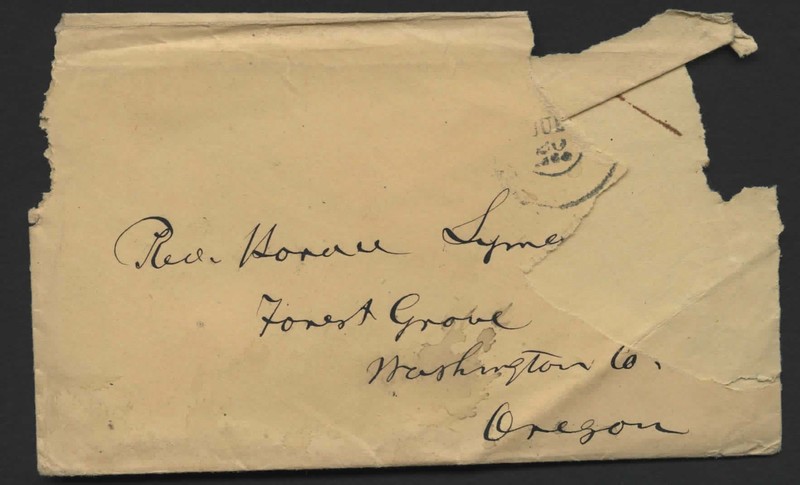 JUL
20
Rev. Horace Lyme
Forest Grove
Washington Co.
Oregon